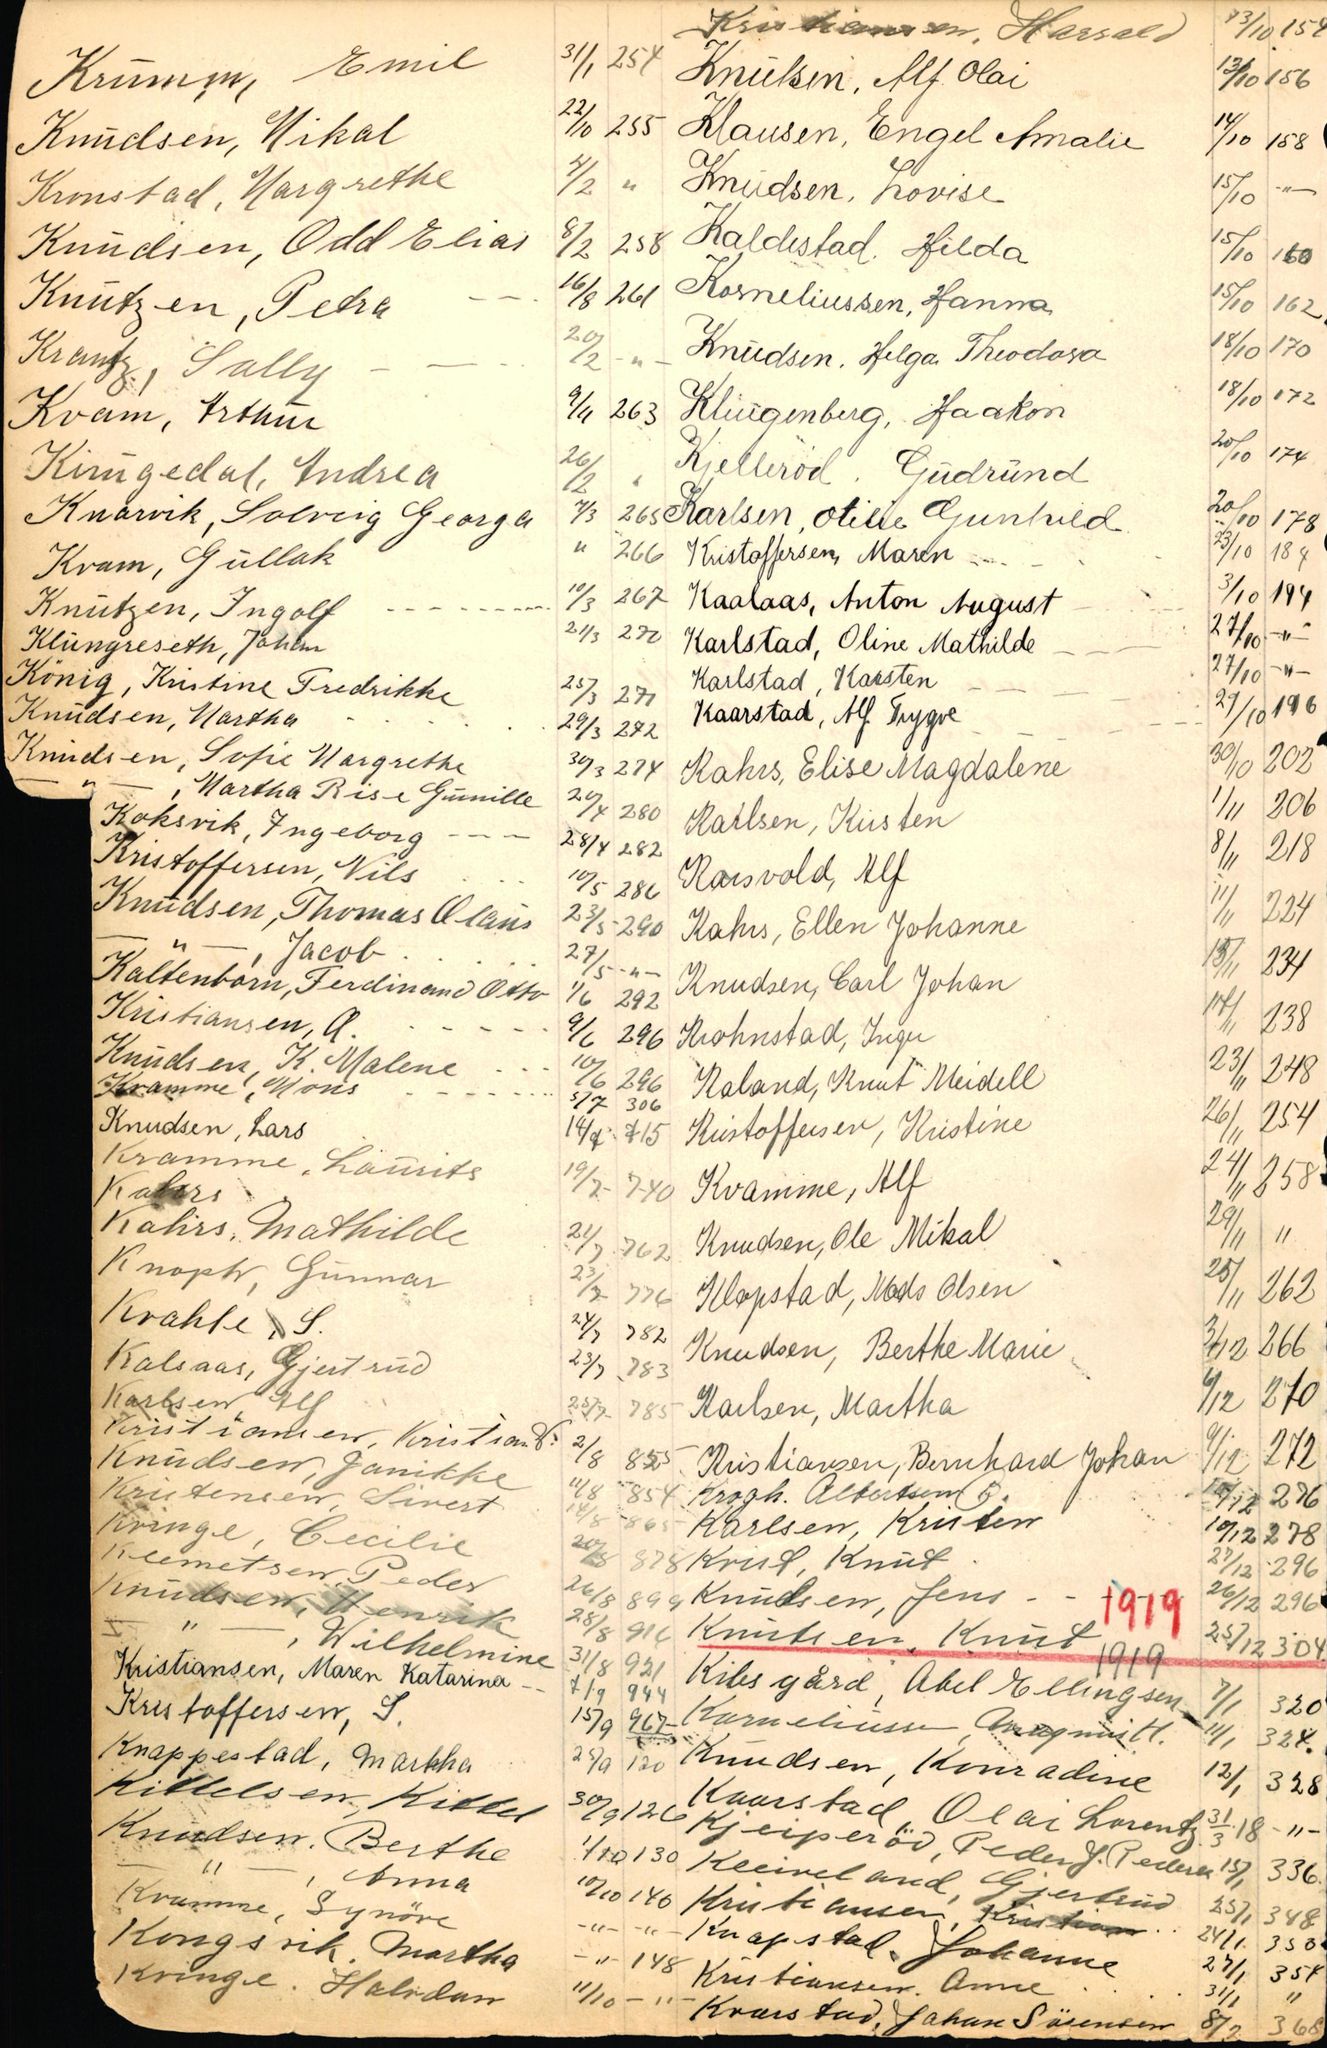 Krumm, Emil 31/1 254
Knudsen, Mikal 22/10 255
Kronstad, Margrethe 4/2 "
Knudsen, Odd Elias 8/2 258
Knutzen, Petra --- 16/8 261
Krantz, Sally --- 20/2 -"-
Kvam, Arthur 9/11 263
Kingedal, Andrea 26/2 "
Knarvik, Solveig Georga 7/3 265
Kvam, Gullak " 266
Knutzen, Ingolf --- 10/3 267
Klungreseth, Johan 21/3 270
König, Kristine Fredrikke 25/3 271
Knudsen, Martha 29/3 272
Knudsen, Sofie Margrethe 30/3 274
— " —, Martha Rise Gunille 20/4 280
Koksvik, Ingeborg --- 28/4 282
Kristoffersen, Nils 10/5 286
Knudsen, Thomas Olaus 23/5 290
— " —, Jacob 27/5 -"-
Kaltenborn, Ferdinand Otto 1/6 292
Kristiansen, A. 9/6 296
Knudsen, K. Malene 10/6 296
Kramme, Mons 5/7 306
Knudsen, Lars 14/7 715
Kramme, Laurits 19/7 740
Kahrs
Kahrs, Mathilde 21/7 762
Knoph, Gunnar 23/7 776
Krahle, S. 24/7 782
Kalsaas, Gjertrud 23/7 783
Karlsen, Alf 25/7 785
Kristiansen, Kristian 2/8 825
Knudsen, Janikke 11/8 854
Kristensen, Sivert 14/8 865
Kringe, Cecilie 20/8 878
Klemetsen, Peder 26/8 899
Knudsen, Henrik 28/8 916
— " —, Wilhelmine 31/8 921
Kristiansen, Maren Katarina -- 7/9 944
Kristoffersen, S. 15/9 967
Knappestad, Martha 27/9 120
Kittelsen, Kittel 30/9 126
Knudsen, Berthe 1/10 130
— " —, Anna 10/10 140
Kramme, Synöve -"- -"-
Kongsvik, Martha -"- 148
Kringe, Halvdan 11/10 -"-
Kristiansen, Harald 13/10 154
Knutsen, Alf Olai 13/10 156
Klausen, Engel Amalie 14/10 158
Knudsen, Lovise 15/10 -"-
Kaldestad, Hilda 15/10 160
Korneliussen, Hanna 15/10 162
Knudsen, Helga Theodora 18/10 170
Klingenberg, Haakon 18/10 172
Kjelleröd, Gudrund 20/10 174
Karlsen, Otilie Gunhild 20/10 178
Kristoffersen, Maren 23/10 184
Kaalaas, Anton August 3/10 194
Karlstad, Oline Mathilde 27/10 -"-
Karlstad, Karsten 27/10 -"-
Kaarstad, Alf Trygve 29/10 196
Kahrs, Elise Magdalene 30/10 202
Karlsen, Kirsten 1/11 206
Karsvold, Alf 8/11 218
Kahrs, Ellen Johanne 11/11 224
Knudsen, Carl Johan 15/11 234
Krohnstad, Inga 238
Kaland, Knut Meidell 23/11 248
Kristoffersen, Kristine 26/11 254
Kvamme, Alf 24/11 258
Knudsen, Ole Mikal 29/11 "
Klopstad, Mads Olsen 25/11 262
Knudsen, Berthe Marie 3/12 266
Karlsen, Martha 6/12 270
Kristiansen, Bernhard Johan 9/12 272
Krogh. Albertsen 276
Karlsen, Kristen 10/12 278
Krist, Knut 27/12 296
Knudsen, Jens -- 26/12 296
1919
Knutsen, Knut 25/12 304
1919
Kilesgård, Abel Ellingsen 7/1 320
Korneliussen, 11/1 324.
Knudsen, Konradine 12/1 328
Kaarstad, Olai Lorentz 31/3 18 -"-
Kjeiperöd, Peder J. Pedersen 15/1 336.
Kleiveland, Gjertrud 25/1 348
Kristiansen, Kristian 24/1 350
Knapstad, Johanne 27/1 354
Kristiansen, Anne 31/1 "
Kvarstad, Johan Sörensen 8/2 368